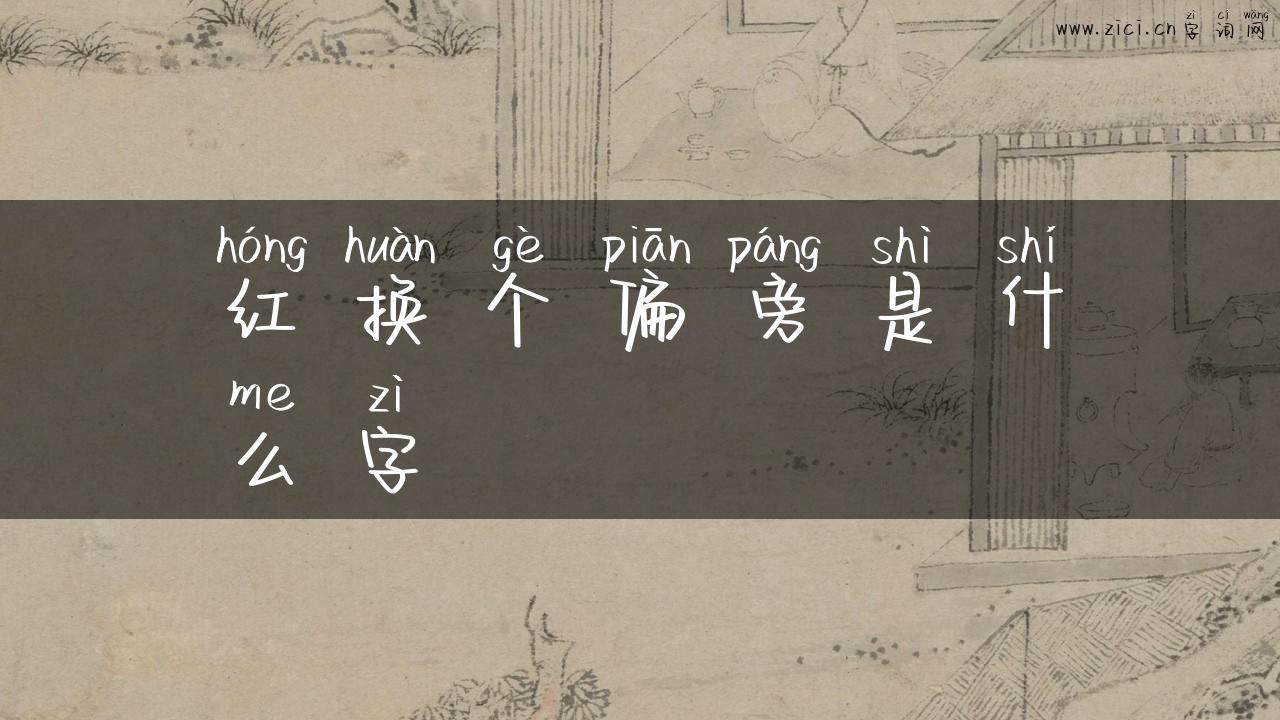 zì cí wǎng
www.zici.cn 字词网
hóng huàn gè piān páng shì shí
红换个偏旁是什
me zì
么字